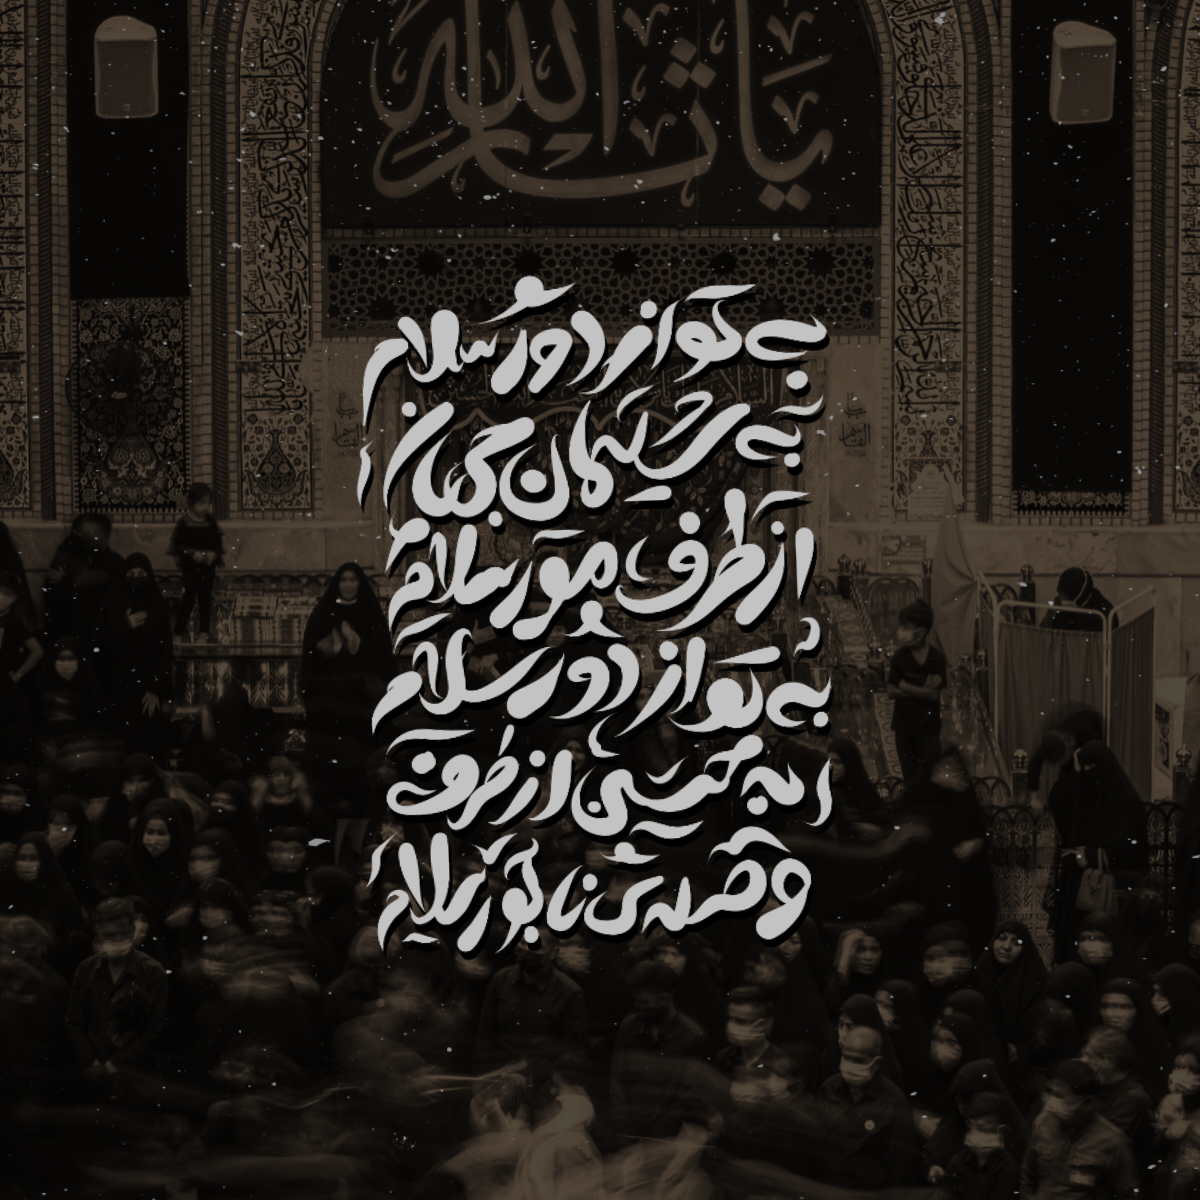 یا ثارالله
به تو از دور سلام
به سلیمان جهان
از طرف مور سلام
به تو از دور سلام
به حسین از طرف
وصله ی ناجور سلام